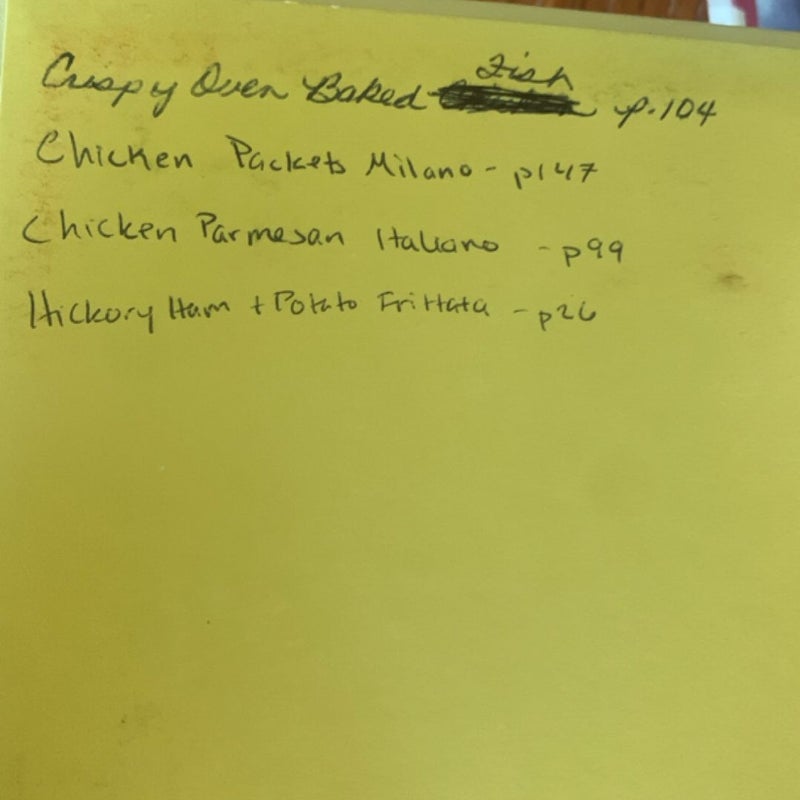 Crispy Oven Baked Fish p.104
Chicken Packets Milano - p147
Chicken Parmesan Italiano - p99
Hickory Ham + Potato Frittata - p26